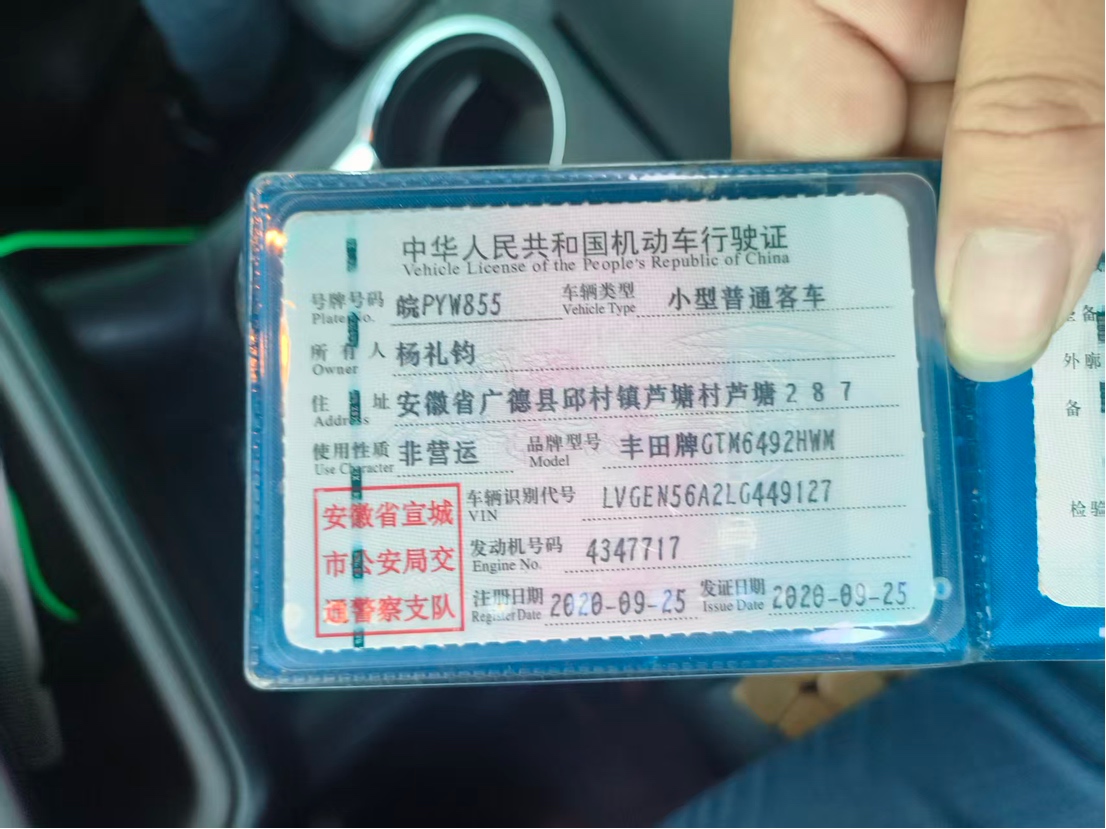 中华人民共和国机动车行驶证
Vehicle License of the People's Republic of China
号牌号码 皖PYW855 车辆类型 小型普通客车
Plate No. Vehicle Type
所有人 杨礼钧
Owner
住址 安徽省广德县邱村镇芦塘村芦塘287
Address
使用性质 非营运 品牌型号 丰田牌GTM6492HWM
Use Character Model
安徽省宣城
市公安局交
通警察支队
车辆识别代号 LVGEN56A2LG449127
VIN
发动机号码 4347717
Engine No.
注册日期 2020-09-25 发证日期 2020-09-25
Register Date Issue Date
外廓
备
检验